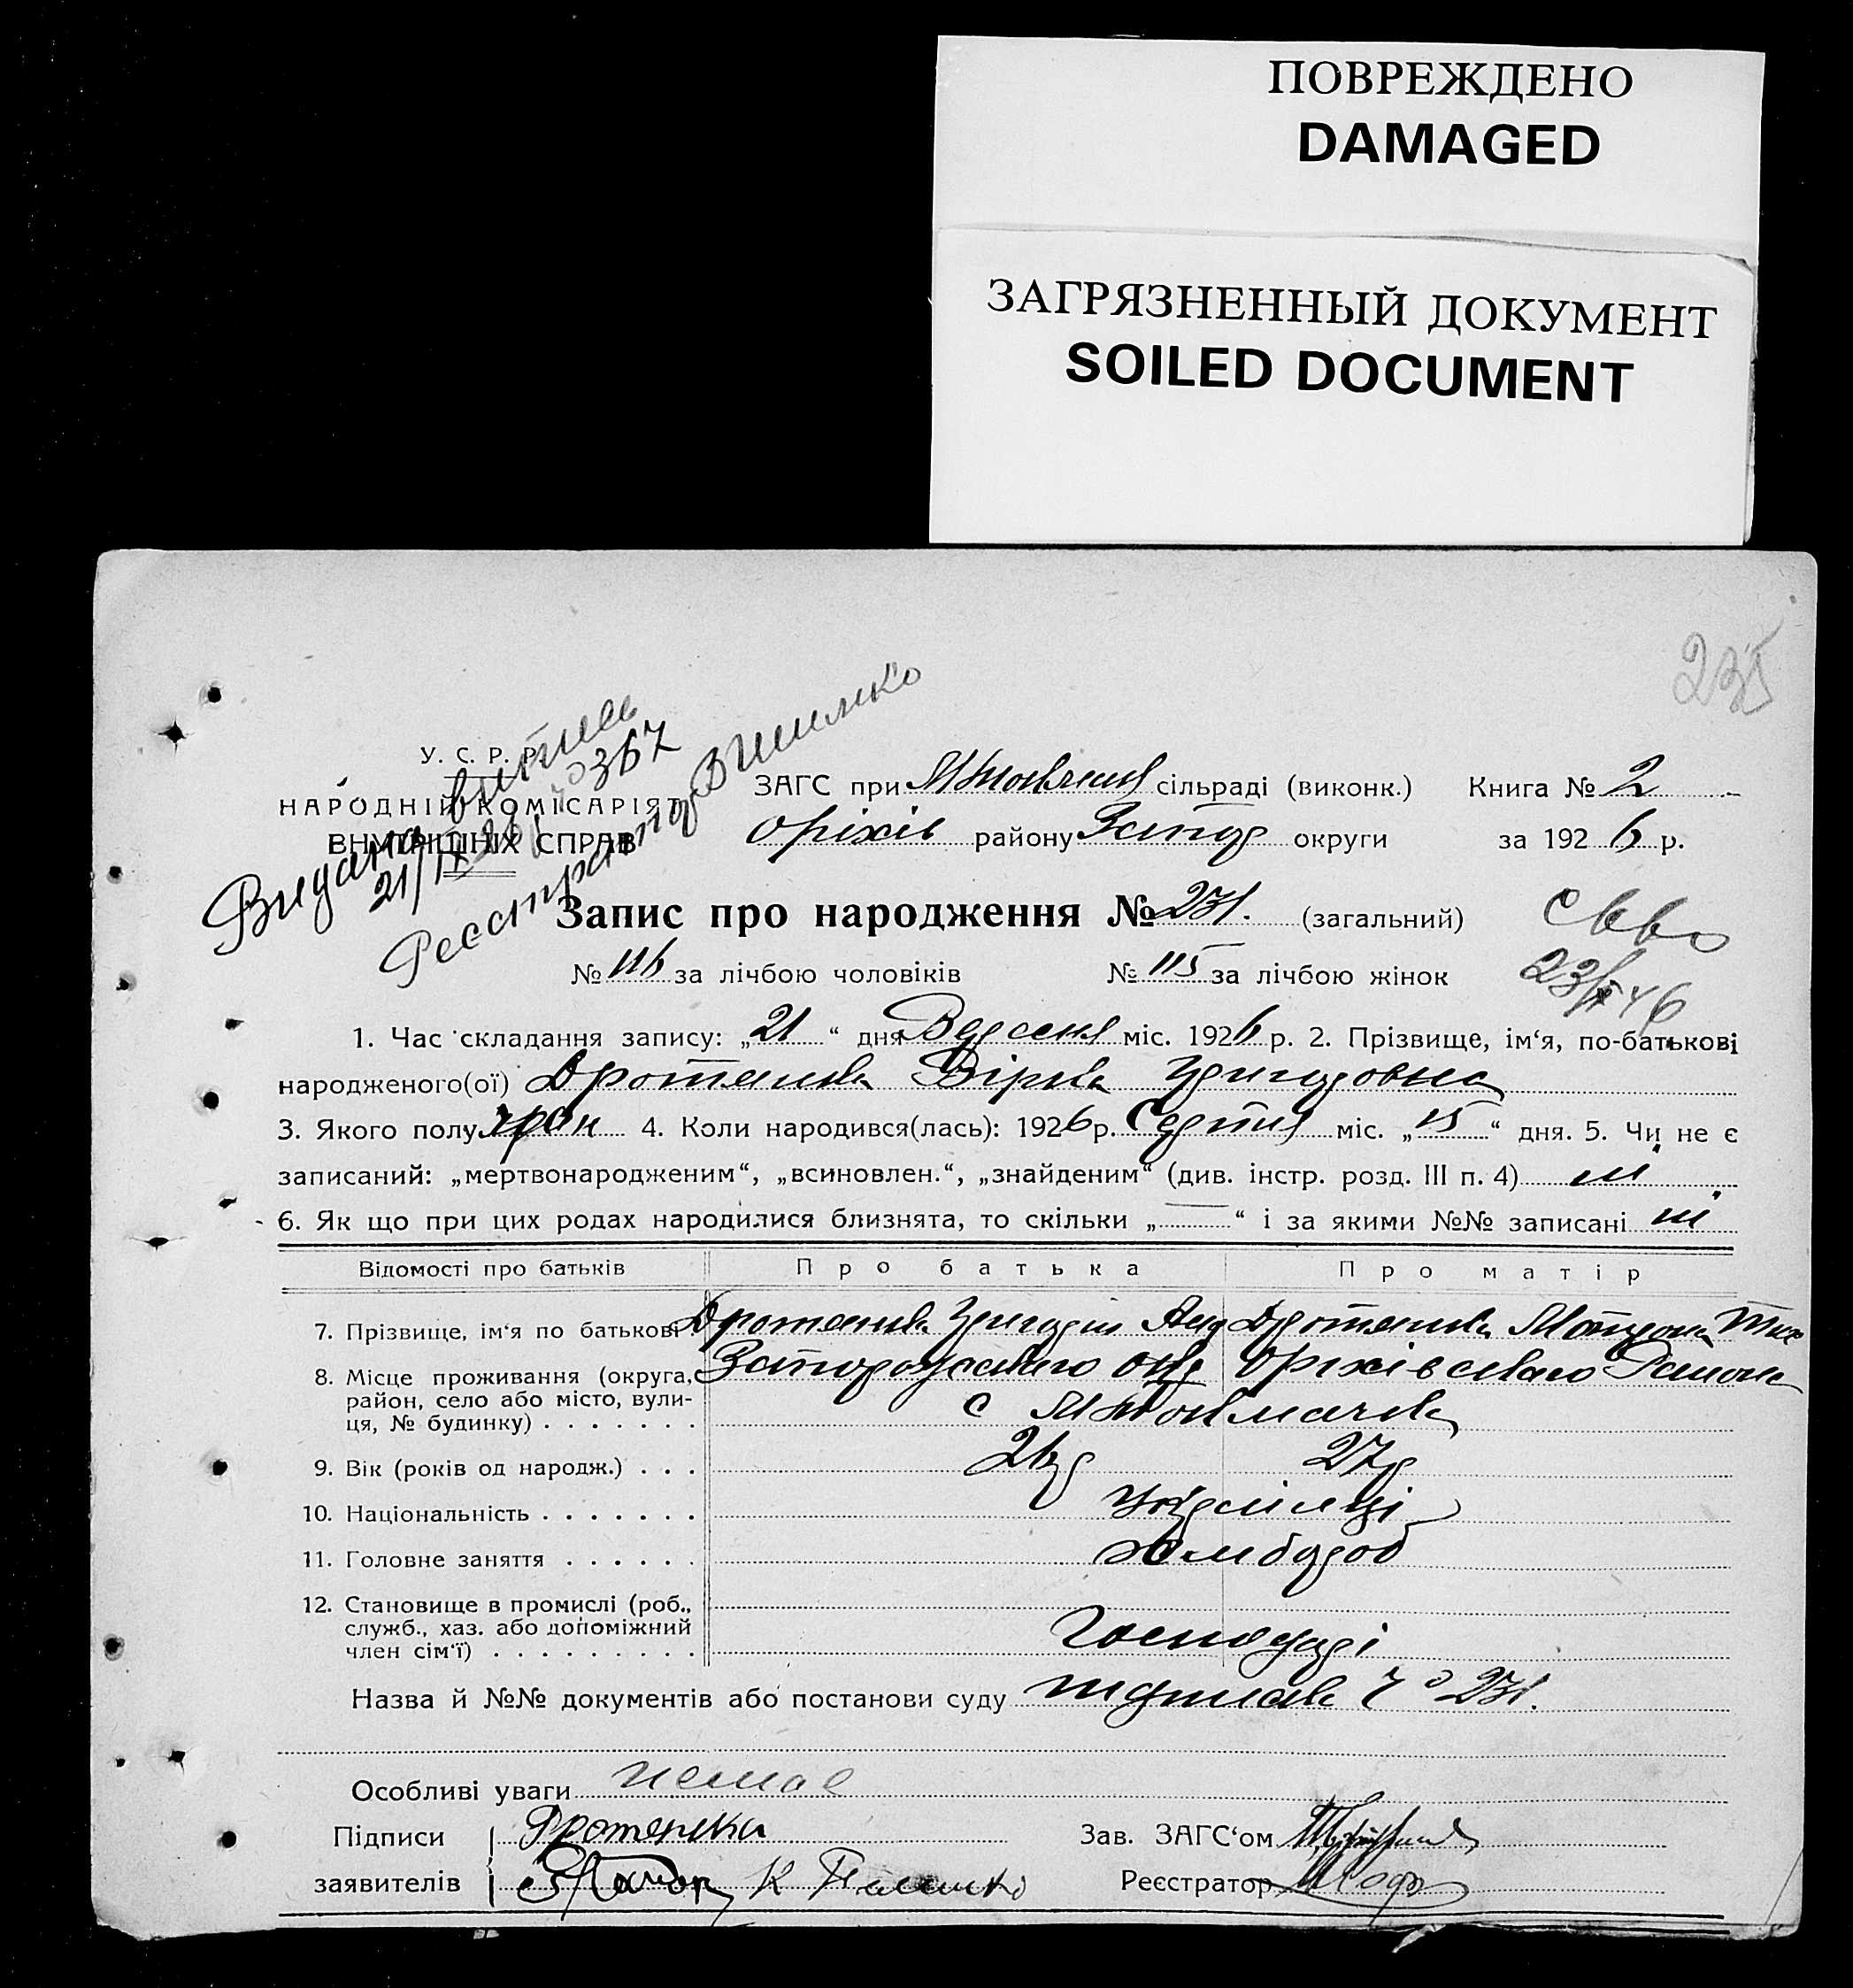 ПОВРЕЖДЕНО
DAMAGED
ЗАГРЯЗНЕННЫЙ ДОКУМЕНТ
SOILED DOCUMENT
235
У. С. Р. Р.
НАРОДНІЙ КОМІСАРІЯТ
ВНУТРІШНІХ СПРАВ
Видана витяг
21/IV 367
Реєстратор
ЗАГС при сільраді (виконк.) Книга № 2
Оріхів району Запор округи за 1926 р.
Запис про народження № 231. (загальний)
№ 116 за лічбою чоловіків № 115 за лічбою жінок
23/ 46
1. Час складання запису: „21“ дня Вересня міс. 1926 р. 2. Прізвище, ім‘я, по-батькові
народженого(ої) Дротянка Вірка Григоровна
3. Якого полу жрін 4. Коли народився(лась): 1926 р. Серпня міс. „15“ дня. 5. Чи не є
записаний: „мертвонародженим“, „всиновлен.“, „знайденим“ (див. інстр. розд. III п. 4) ні
6. Як що при цих родах народилися близнята, то скільки „—“ і за якими №№ записані ні
Відомості про батьків Про батька Про матір
7. Прізвище, ім‘я по батькові Дротянка Григорій Анд Дротянка Мотрона Тих
8. Місце проживання (округа, Запорожського окр Оріхівського Району
район, село або місто, вули-
ця, № будинку) . . . . . . . с
9. Вік (років од народж.) . . . 26р 27р
10. Національність . . . . . . . Українці
11. Головне заняття . . . . . . хлібороб
12. Становище в промислі (роб.,
служб., хаз. або допоміжний
член сім‘ї) . . . . . . . . . Господарі
Назва й №№ документів або постанови суду 231.
Особливі уваги немає
Підписи Дротенка Зав. ЗАГС‘ом
заявителів К Реєстратор